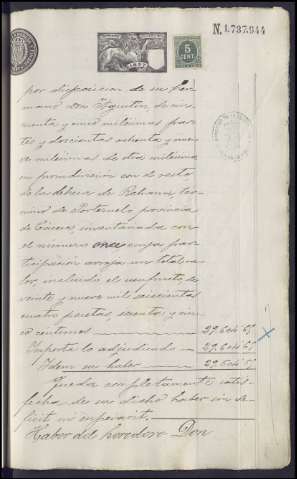 N. 1.737.944
5
CENT
1897
por disposicion de su her-
mano don Agustin, de cin-
cuenta y una milesimas par-
tes y doscientas ochenta y nue-
ve milesimas de otra milesima
en proindivision con el resto
de la dehesa de
mino de Portezuelo provincia
de Cáceres, inventariada con
el número once cuya par-
ticipacion arroja un total va-
lor, incluido el usufructo, de
veinte y nueve mil seiscientas
cuatro pesetas, sesenta y cin-
co centimos 29.604 65
Importa lo adjudicado 29.604 65
Idem su haber 29.604 65
Queda completamente satis-
fecho de su dicho haber sin dé-
ficit ni
Haber del heredero Don